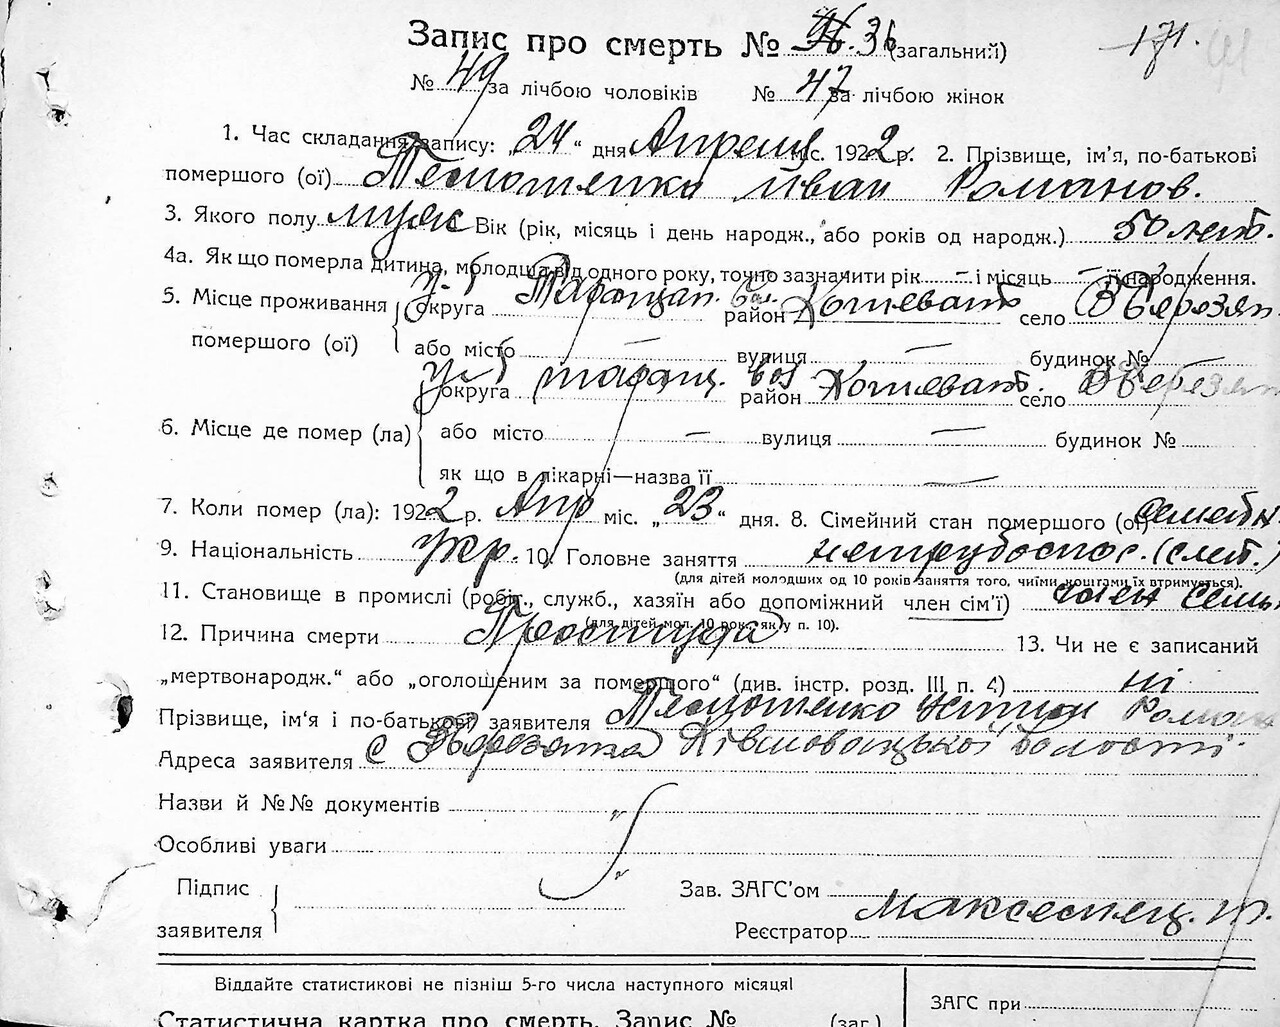 Запис про смерть № 36 (загальний) 171.
№ 49 за лічбою чоловіків № 47 за лічбою жінок
1. Час складання запису: „24“ дня Апреля міс. 1922 р. 2. Прізвище, ім'я, по-батькові
помершого (ої) Иван Романов.
3. Якого полу муж Вік (рік, місяць і день народж., або років од народж.) 50 лет.
4а. Як що померла дитина, молодша від одного року, точно зазначити рік — і місяць — її народження.
5. Місце проживання округа у. Таращан. район вол. Кошеват. село В Березян.
помершого (ої) або місто — вулиця — будинок №
округа у. таращ. район вол Кошеват. село В Березян
6. Місце де помер (ла) або місто — вулиця — будинок №
як що в лікарні—назва її —
7. Коли помер (ла): 1922 р. Апр міс. „23“ дня. 8. Сімейний стан помершого (ої) семейн.
9. Національність Укр. 10. Головне заняття нетрудоспос. (слеп.)
(для дітей молодших од 10 років заняття того, чиїми коштами їх втримується).
11. Становище в промислі (робіт., служб., хазяїн або допоміжний член сім'ї) член семьи
(для дітей мол. 10 рок., як у п. 10).
12. Причина смерти Простуда 13. Чи не є записаний
„мертвонародж.“ або „оголошеним за померлого“ (див. інстр. розд. III п. 4) ні
Прізвище, ім'я і по-батькові заявителя Роман
Адреса заявителя с Березянка волості.
Назви й №№ документів
Особливі уваги
Підпис Зав. ЗАГС'ом
заявителя Реєстратор
Віддайте статистикові не пізніш 5-го числа наступного місяця!
ЗАГС при
Статистична картка про смерть. Запис № (заг.)